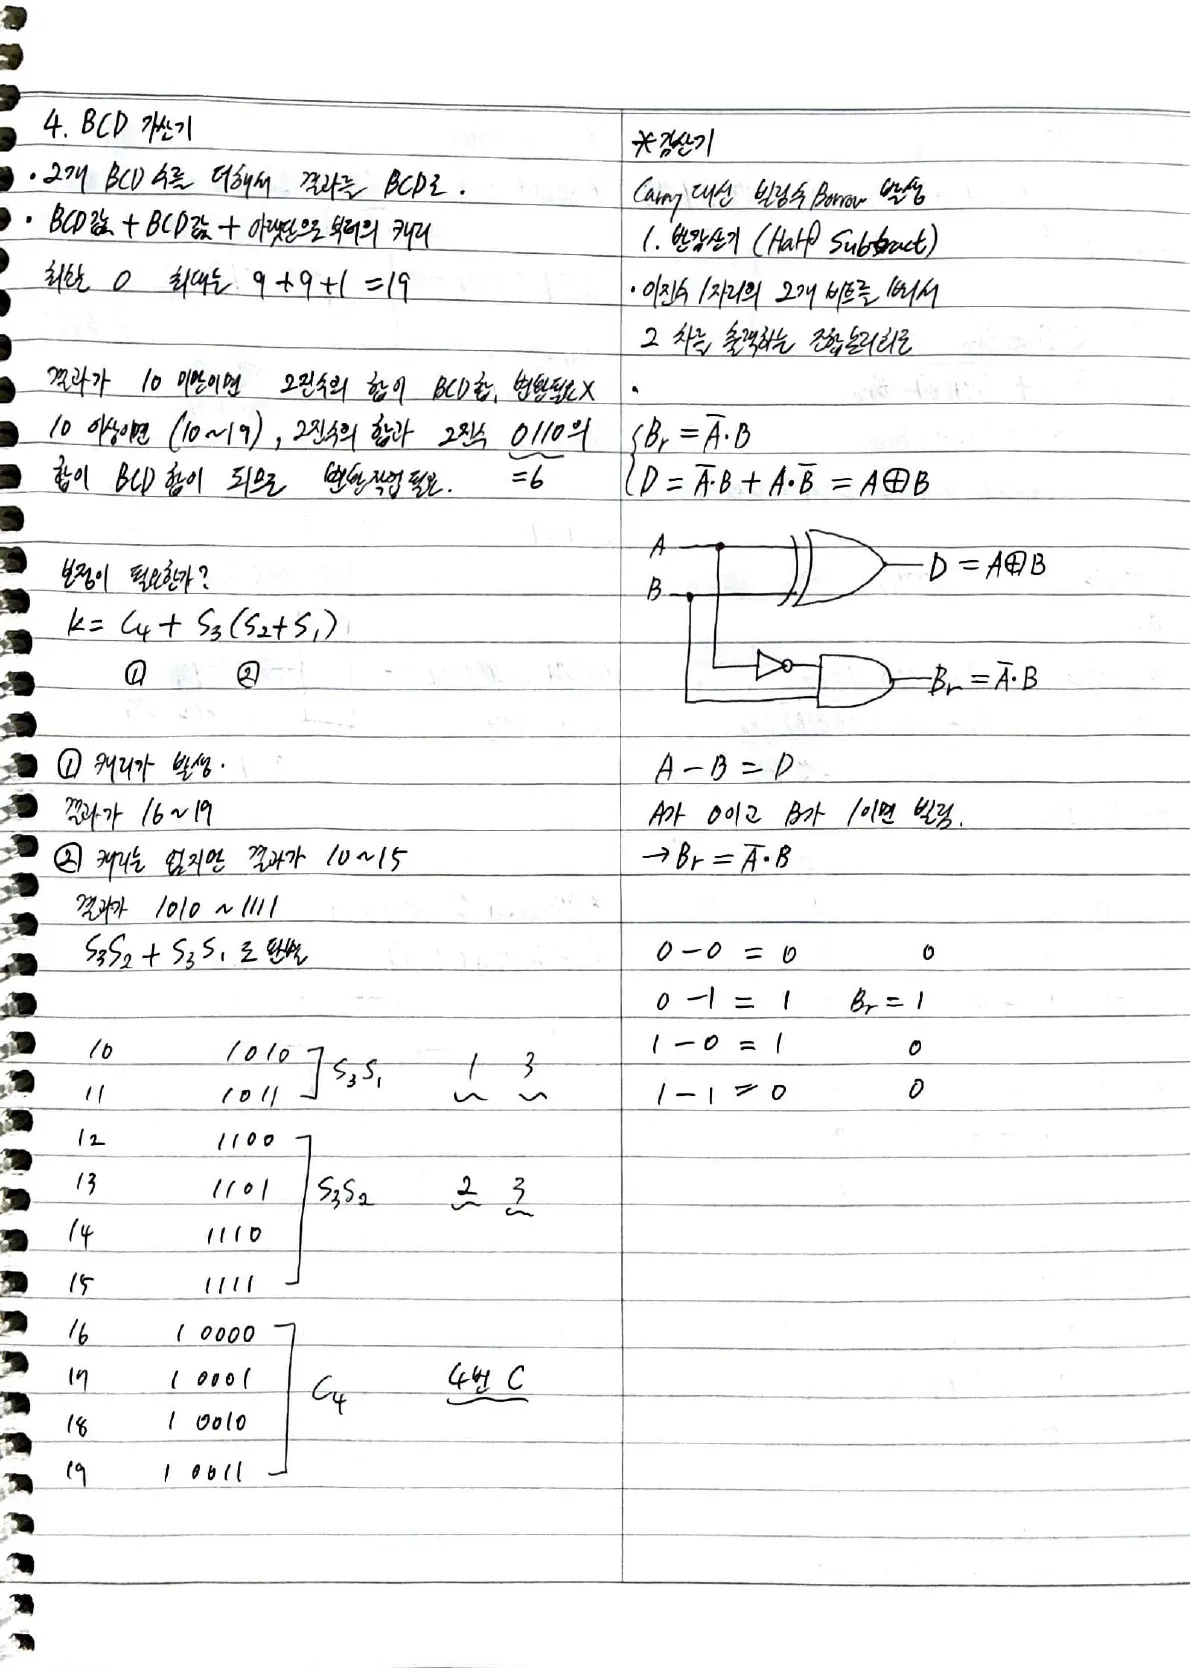 4. BCD 가산기
· 2개 BCD 수를 더해서 결과를 BCD로.
· BCD값 + BCD값 + 아랫단으로 부터의 캐리
최소는 0 최대는 9+9+1=19
결과가 10 미만이면 2진수의 합이 BCD합, 변환필요X
10 이상이면 (10~19), 2진수의 합과 2진수 0110의
합이 BCD 합이 되므로 변환작업필요. =6
보정이 필요한가?
k = C₄ + S₃(S₂+S₁)
① ②
① 캐리가 발생.
결과가 16~19
② 캐리는 없지만 결과가 10~15
결과가 1010 ~ 1111
S₃S₂ + S₃S₁ 로 판별
10 1010
11 1011 S₃S₁ 1 3
12 1100
13 1101 S₃S₂ 2 3
14 1110
15 1111
16 1 0000
17 1 0001 C₄ 4번 C
18 1 0010
19 1 0011
*감산기
Carry 대신 빌림수 Borrow 발생
1. 반감산기 (Half Subtract)
· 이진수 1자리의 2개 비트를 빼서
그 차를 출력하는 조합논리회로
·
Br = A̅·B
D = A̅·B + A·B̅ = A⊕B
A
D = A⊕B
B
Br = A̅·B
A − B = D
A가 0이고 B가 1이면 빌림.
→ Br = A̅·B
0 − 0 = 0 0
0 − 1 = 1 Br = 1
1 − 0 = 1 0
1 − 1 = 0 0